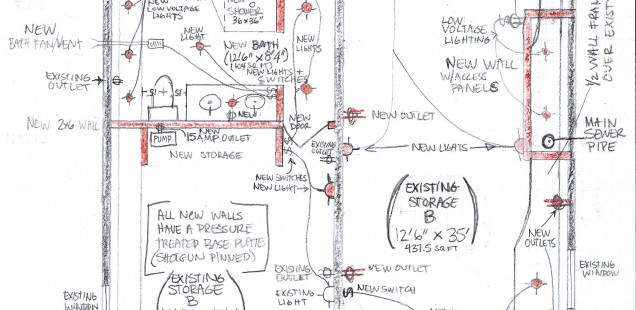 NEW
LOW VOLTAGE
LIGHTS
NEW
SHOWER
36x36"
NEW
BATH FAN/VENT
NEW
LIGHT
NEW BATH
(12'6" x 8'4")
(104 SQ FT)
NEW
LIGHTS
NEW LIGHTS +
SWITCHES
EXISTING
OUTLET
NEW
NEW 2x6 WALL
PUMP
NEW
15AMP OUTLET
NEW STORAGE
NEW
DOOR
EXISTING
OUTLET
NEW SWITCHES
NEW LIGHT
NEW OUTLET
NEW LIGHTS
LOW
VOLTAGE
LIGHTING
NEW WALL
W/ACCESS
PANELS
1/2 WALL FRAM
OVER EXIST
MAIN
SEWER
PIPE
EXISTING
STORAGE
B
12'6" x 35'
437.5 SQ FT
NEW
OUTLETS
ALL NEW WALLS
HAVE A PRESSURE
TREATED BASE PLATE
(SHOTGUN PINNED)
EXISTING
STORAGE
B
EXISTING
OUTLET
NEW OUTLET
EXISTING
LIGHT
NEW SWITCH
EXISTING
WINDOW
EXISTING
WINDOW